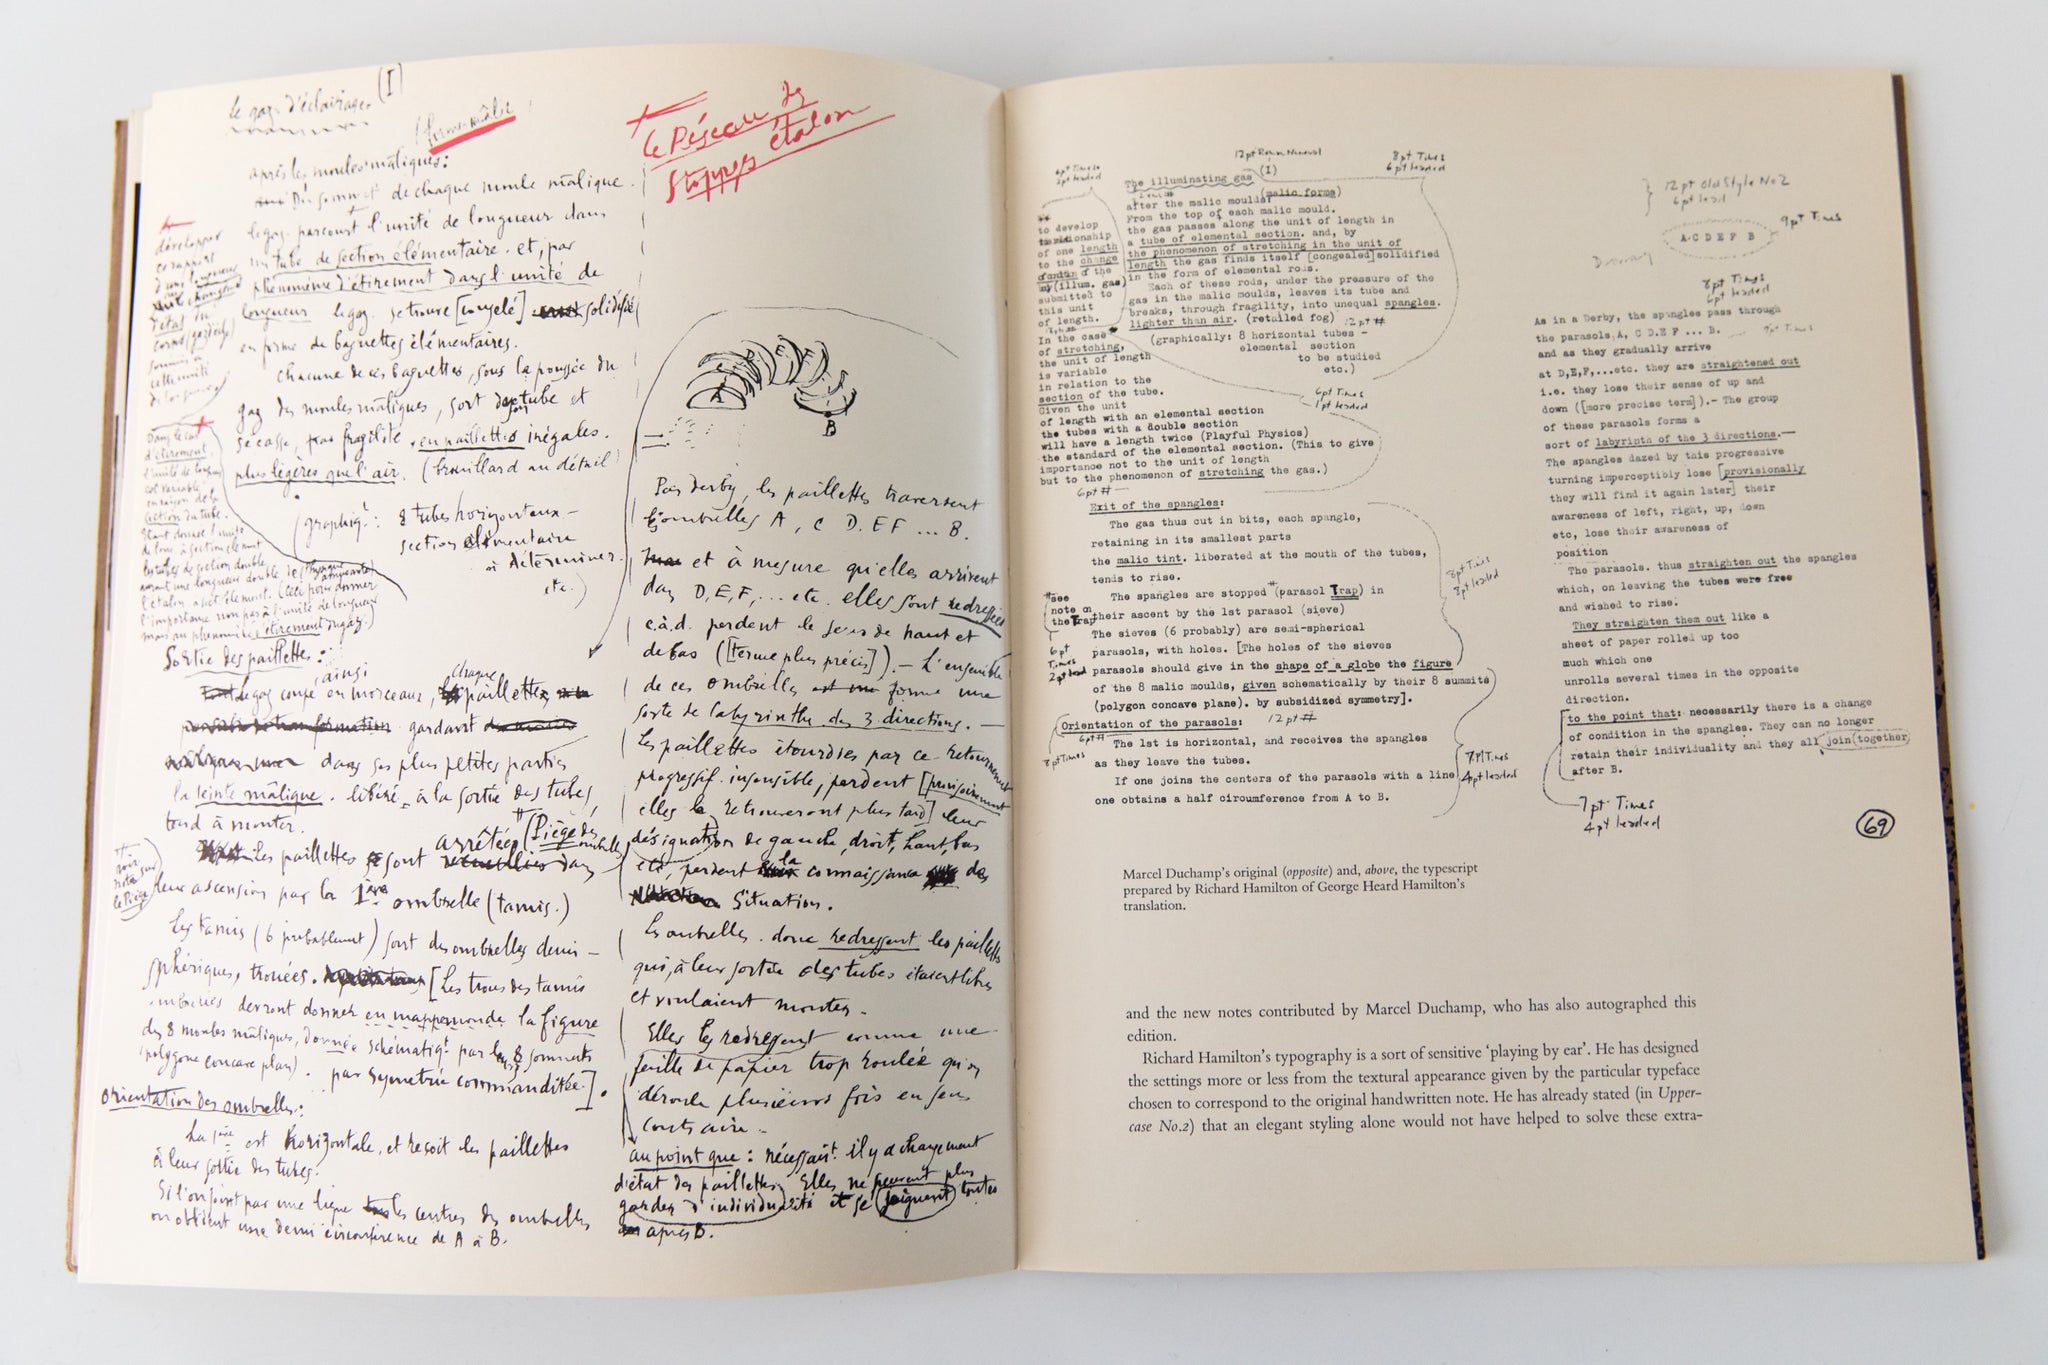 le gaz d'éclairage (I)
après les moules mâliques:
Du sommet de chaque moule malique.
le gaz parcourt l'unité de longueur dans
un tube de section élémentaire. et, par
phénomène d'étirement dans l'unité de
longueur le gaz se trouve [congelé] solidifié
en forme de baguettes élémentaires.
chacune de ces baguettes, sous la poussée du
gaz des moules mâliques, sort de son tube et
se casse, par fragilité, en paillettes inégales.
plus légères que l'air. (brouillard au détail)
(graphiqt: 8 tubes horizontaux –
section élémentaire
à déterminer.
etc.)
développer
ce rapport
d'une longueur
état du
corps (gaz d'écl)
soumis à
cette unité
de longueur
Dans le cas
d'étirement,
l'unité de longueur
est variable
en raison de la
section du tube.
Etant donnée l'unité
de long. à section élément
les tubes de section double
auront une longueur double de
l'étalon à sect. élément. (Ceci pour donner
l'importance non pas à l'unité de longueur
mais au phénomène étirement du gaz.)
Sortie des paillettes:
le gaz coupé ainsi en morceaux, chaque paillette
gardant
dans ses plus petites parties
la teinte mâlique. libéré à la sortie des tubes,
tend à monter.
les paillettes sont arrêtées (Piège des ombrelles) dans
leur ascension par la 1ère ombrelle (tamis.)
voir
note sur
le Piège
Les tamis (6 probablement) sont des ombrelles demi-
sphériques, trouées. [Les trous des tamis
ombrelles devront donner en mappemonde la figure
des 8 moules mâliques, donnée schématiqt par les 8 sommets
(polygone concave plan). par symétrie commanditée].
Orientation des ombrelles:
La 1ère est horizontale, et reçoit les paillettes
à leur sortie des tubes.
Si l'on joint par une ligne les centres des ombrelles
on obtient une demi circonférence de A à B.
le Réseau des
stoppages étalon
A
B
Pris derby, les paillettes traversent
ombrelles A, C D. E F ... B.
et à mesure qu'elles arrivent
dans D, E, F, ... etc. elles sont redressées
c.à.d. perdent le sens de haut et
de bas ([terme plus précis]). – L'ensemble
de ces ombrelles forme une
sorte de labyrinthe des 3 directions. –
Les paillettes étourdies par ce retournement
progressif. insensible, perdent [provisoirement
elles la retrouveront plus tard] leur
désignation de gauche, droit, haut, bas
etc, perdent la connaissance de
situation.
Les ombrelles. donc redressent les paillettes
qui, à leur sortie des tubes étaient libres
et voulaient monter.
Elles les redressent comme une
feuille de papier trop roulée qu'on
déroule plusieurs fois en sens
contraire.
au point que: nécessairt il y a changement
d'état des paillettes. Elles ne peuvent plus
garder d'individualité et se joignent toutes
après B.
12pt Roman Numeral
6pt Times
2pt leaded
8pt Times
6pt leaded
The illuminating gas (I)
(malic forms)
after the malic moulds:
From the top of each malic mould.
the gas passes along the unit of length in
a tube of elemental section. and, by
the phenomenon of stretching in the unit of
length the gas finds itself [congealed] solidified
in the form of elemental rods.
Each of these rods, under the pressure of the
gas in the malic moulds, leaves its tube and
breaks, through fragility, into unequal spangles.
lighter than air. (retailed fog)
12pt #
(graphically: 8 horizontal tubes –
elemental section
to be studied
etc.)
to develop
relationship
of one length
to the change
of the
(illum. gas)
submitted to
this unit
of length.
In the case
of stretching,
the unit of length
is variable
in relation to the
section of the tube.
Given the unit
of length with an elemental section
the tubes with a double section
will have a length twice (Playful Physics)
the standard of the elemental section. (This to give
importance not to the unit of length
but to the phenomenon of stretching the gas.)
6pt Times
1pt leaded
6pt # –
Exit of the spangles:
The gas thus cut in bits, each spangle,
retaining in its smallest parts
the malic tint. liberated at the mouth of the tubes,
tends to rise.
The spangles are stopped (parasol Trap) in
their ascent by the 1st parasol (sieve)
The sieves (6 probably) are semi-spherical
parasols, with holes. [The holes of the sieves
parasols should give in the shape of a globe the figure
of the 8 malic moulds, given schematically by their 8 summits
(polygon concave plane). by subsidized symmetry].
#see
note on
the Trap
6pt
Times
2pt leaded
8pt Times
8pt leaded
Orientation of the parasols:
12pt #
6pt #
The 1st is horizontal, and receives the spangles
as they leave the tubes.
If one joins the centers of the parasols with a line
one obtains a half circumference from A to B.
8pt Times
7Pt Times
4pt leaded
12pt Old Style No 2
6pt lead
A·C D E F B
9pt Times
Drawing
8pt Times
6pt leaded
As in a Derby, the spangles pass through
the parasols A, C D.E F ... B.
and as they gradually arrive
at D,E,F,...etc. they are straightened out
i.e. they lose their sense of up and
down ([more precise term]).– The group
of these parasols forms a
sort of labyrinth of the 3 directions.—
The spangles dazed by this progressive
turning imperceptibly lose [provisionally
they will find it again later] their
awareness of left, right, up, down
etc, lose their awareness of
position
The parasols. thus straighten out the spangles
which, on leaving the tubes were free
and wished to rise.
They straighten them out like a
sheet of paper rolled up too
much which one
unrolls several times in the opposite
direction.
to the point that: necessarily there is a change
of condition in the spangles. They can no longer
retain their individuality and they all join together
after B.
7pt Times
4pt leaded
69
Marcel Duchamp's original (opposite) and, above, the typescript
prepared by Richard Hamilton of George Heard Hamilton's
translation.
and the new notes contributed by Marcel Duchamp, who has also autographed this
edition.
Richard Hamilton's typography is a sort of sensitive 'playing by ear'. He has designed
the settings more or less from the textural appearance given by the particular typeface
chosen to correspond to the original handwritten note. He has already stated (in Upper-
case No.2) that an elegant styling alone would not have helped to solve these extra-